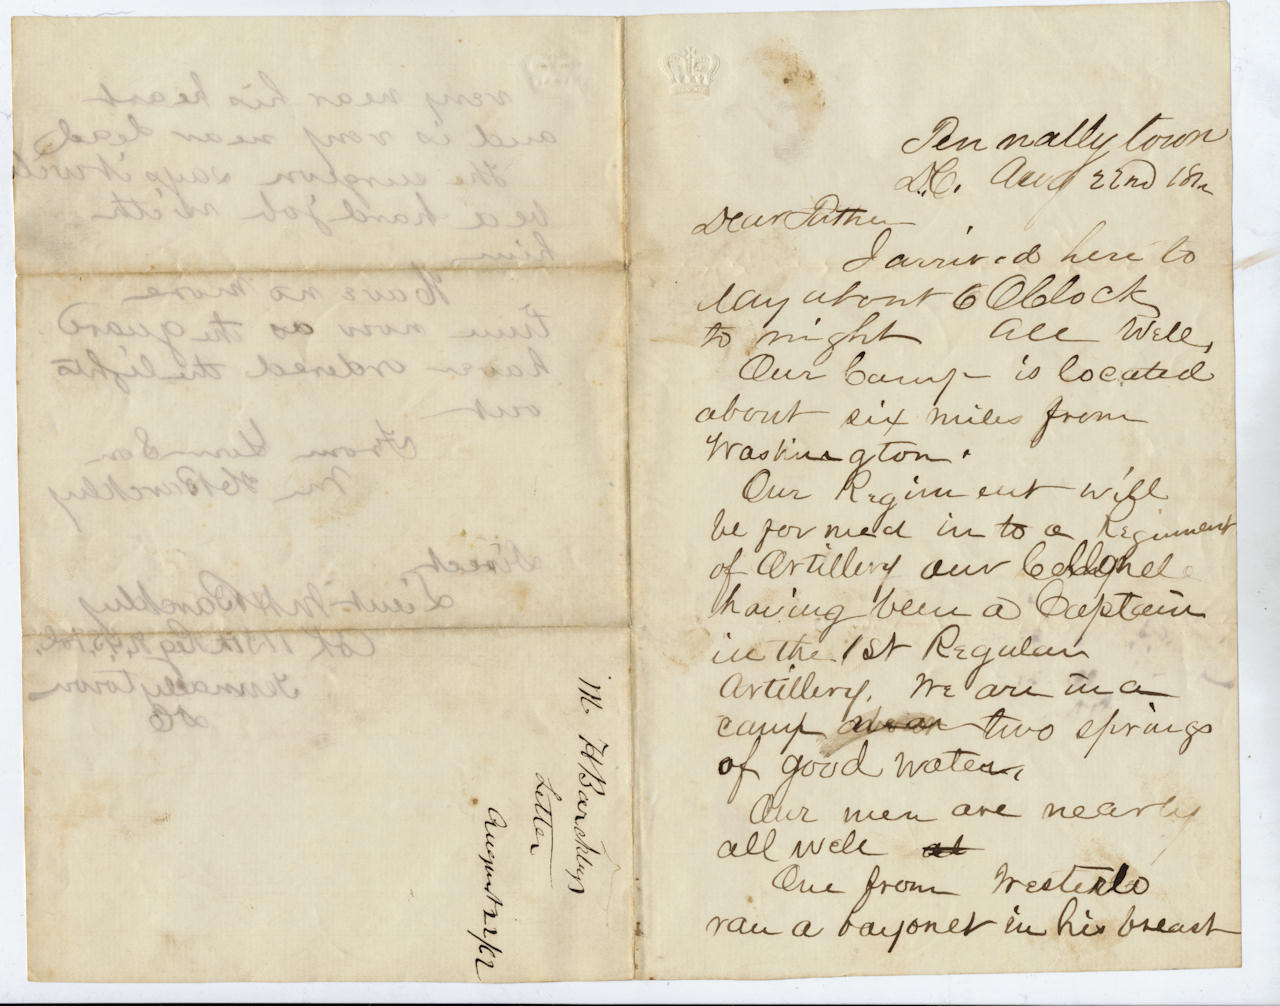 Pennallytown
D.C. Aug 22nd 1862
Dear Father
I arrived here to
day about 6 OClock
to night all well,
Our Camp is located
about six miles from
Washington.
Our Regiment will
be formed in to a Regiment
of Artillery our Collonel
having been a Captain
in the 1st Regular
Artillery. We are in a
camp near two springs
of good water,
Our men are nearly
all well at
One from Westerlo
ran a bayonet in his breast
very near his heart
and is very near dead
the surgeon says it will
be a hard job with
him
Have no more
time now as the guard
have ordered the lights
out
From Your Son
M H Barckley
Direct
Lieut M H Barckley
Co K 113th Reg N.Y.S. Vol.
Tennallytown
DC
M. H Barckleys
Letter
August 22/62